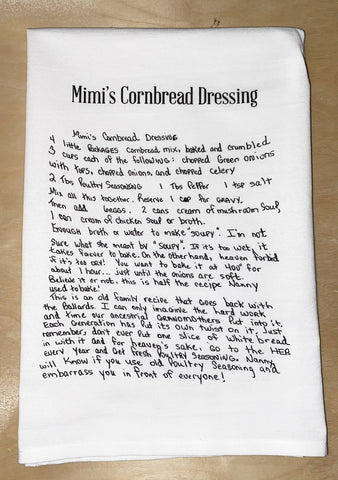 Mimi's Cornbread Dressing
Mimi's Cornbread Dressing
4 little packages cornbread mix, baked and crumbled
3 cups each of the following: chopped Green onions
with tops, chopped onions, and chopped celery
2 Tbs Poultry Seasoning 1 Tbs Pepper 1 tsp salt
Mix all this together. Reserve 1 cup for gravy.
Then add 6 eggs. 2 cans cream of mushroom soup
1 can cream of chicken soup or broth.
Enough broth or water to make "soupy". I'm not
sure what she meant by "soupy". If it's too wet, it
takes forever to bake. On the other hand, heaven forbid
if it's too dry! You want to bake it at 400° for
about 1 hour... just until the onions are soft.
Believe it or not, this is half the recipe Nanny
used to bake!
This is an old family recipe that goes back with
the Ballards. I can only imagine the hard work
and time our ancestral GRANDmothers put into it.
Each Generation has put its own twist on it. Just
remember, don't ever put one slice of White bread
in with it and for heaven's sake, Go to the HEB
every year and Get fresh Poultry Seasoning. Nanny
will know if you use old Poultry Seasoning and
embarrass you in front of everyone!